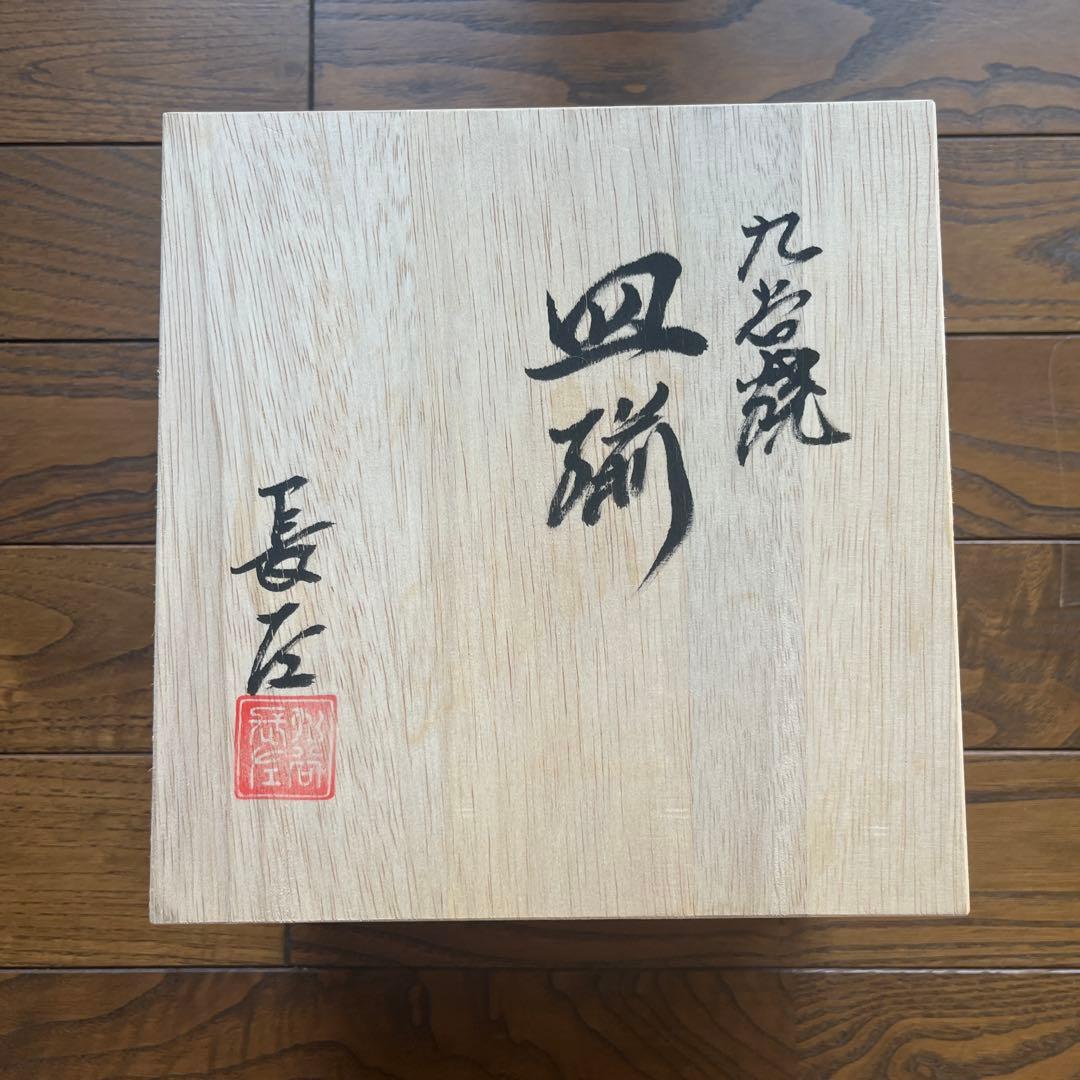 九谷焼
皿揃
長左